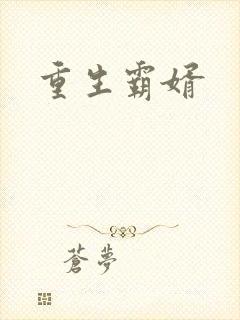 重生霸婿
蒼夢